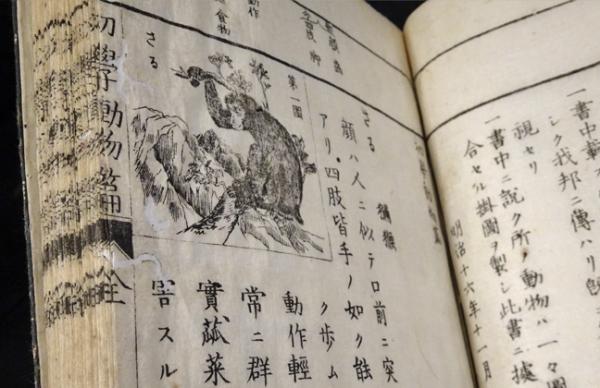 一書中載
シク我邦ニ傳ハリ
視セリ
一書中ニ説ク所ノ動物ハ一々圖
合セル掛圖ヲ製シ此書ニ據
明治十六年十一月
動作
食物
さる 獼猴
顔ハ人ニ似テ口前ニ突
アリ四肢皆手ノ如ク能
ク歩ム
動作輕
常ニ群
實蔬菜
害スル
第一圖
さる
初學動物篇 全